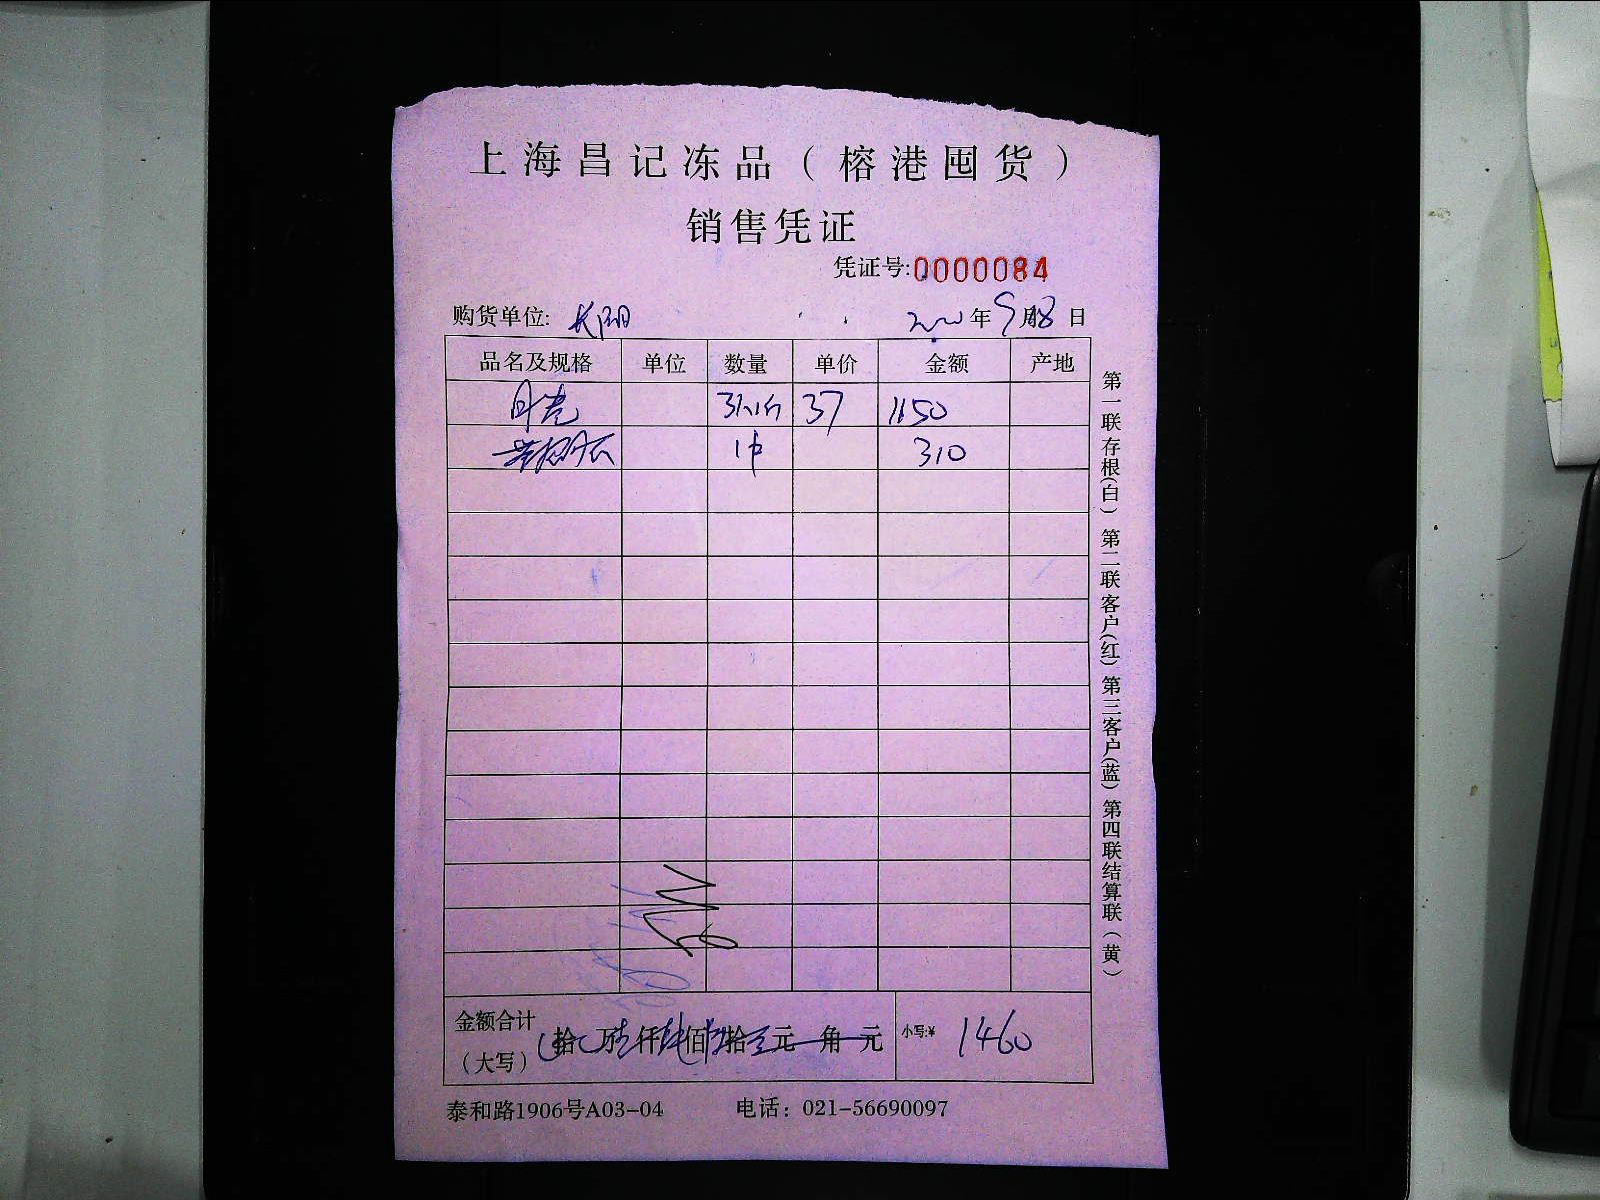 上海昌记冻品（榕港囤货）
销售凭证
凭证号:0000084
购货单位: 长阳 年9月18日
品名及规格 单位 数量 单价 金额 产地
37 1150
1件 310
金额合计（大写） 拾 万 仟 佰 拾 元 角 元 小写:¥ 1460
泰和路1906号A03-04 电话：021-56690097
第一联存根(白) 第二联客户(红) 第三客户(蓝) 第四联结算联（黄）